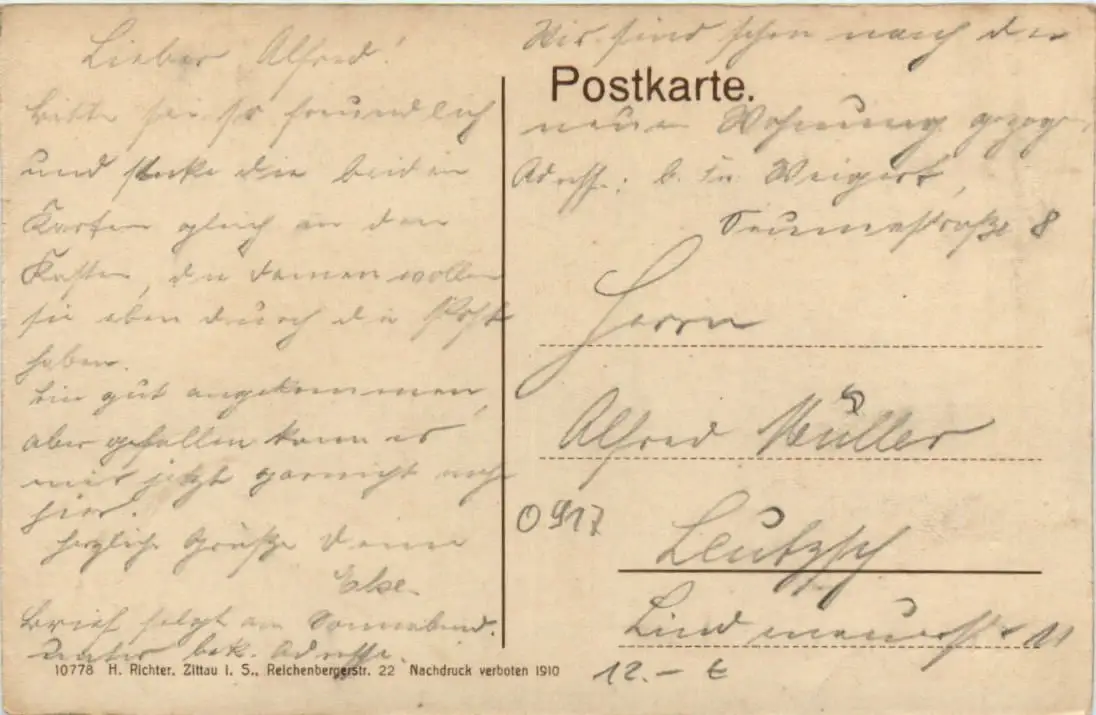 Lieber Alfred!
Bitte sei so freundlich
und stecke die beiden
Karten gleich in den
Kasten, die Damen wollen
sie eben durch die Post
haben.
Bin gut angekommen,
aber gefallen kann es
mir jetzt garnicht mehr
hier.
Herzliche Grüße Deine
Else.
Brief folgt am Sonnabend.
unter bek. Adresse.
Wir sind schon nach der
Postkarte.
neuen Wohnung gezogen
Adresse: b. Fr. Weigert,
Seumestraße 8
Herrn
Alfred Müller
0917
Leutzsch
Lindenauerstr 11
12.- €
10778 H. Richter, Zittau i. S., Reichenbergerstr. 22 Nachdruck verboten 1910